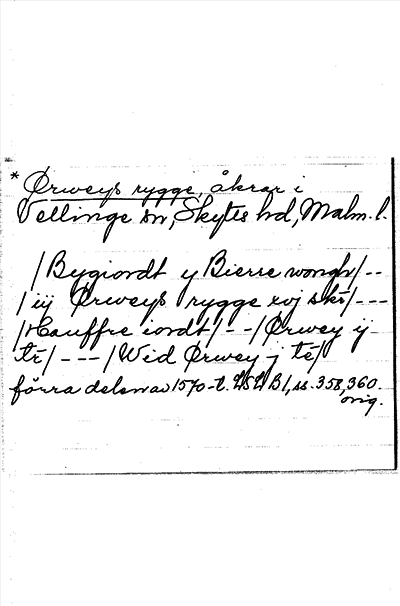 * Ørweys rygge, åkrar i
Vellinge sn, Skytts hd, Malm. l.
/Bygiordt y Bierre wongh/--
/iij Ørweys rygge xvj skr/---
/Hauffre iordt/--/Ørwey ij
tr/---/Wid Ørwey j te/
förra delen av 1570-t. LSLB1, ss. 358, 360.
orig.